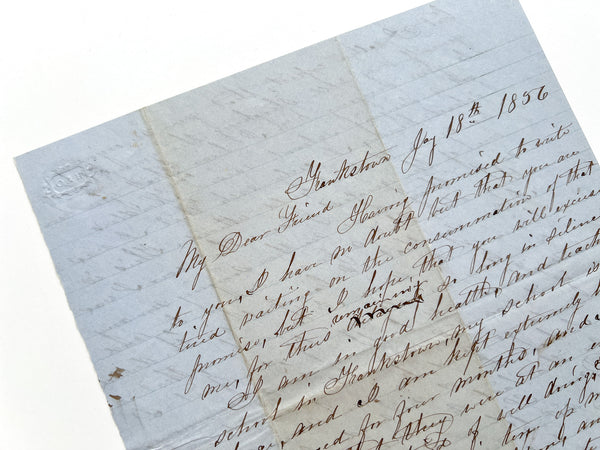 Frankstown Jay 18th 1856
My Dear Friend
Having promised to write
to you, I have no doubt but that you are
tired waiting on the consummation of that
promise, but I hope that you will excuse
me, for thus remaining so long in silence
I am in good health, and teach
school in Frankstown, my school is
and I am kept extremely
for four months, and
they were at an
I will